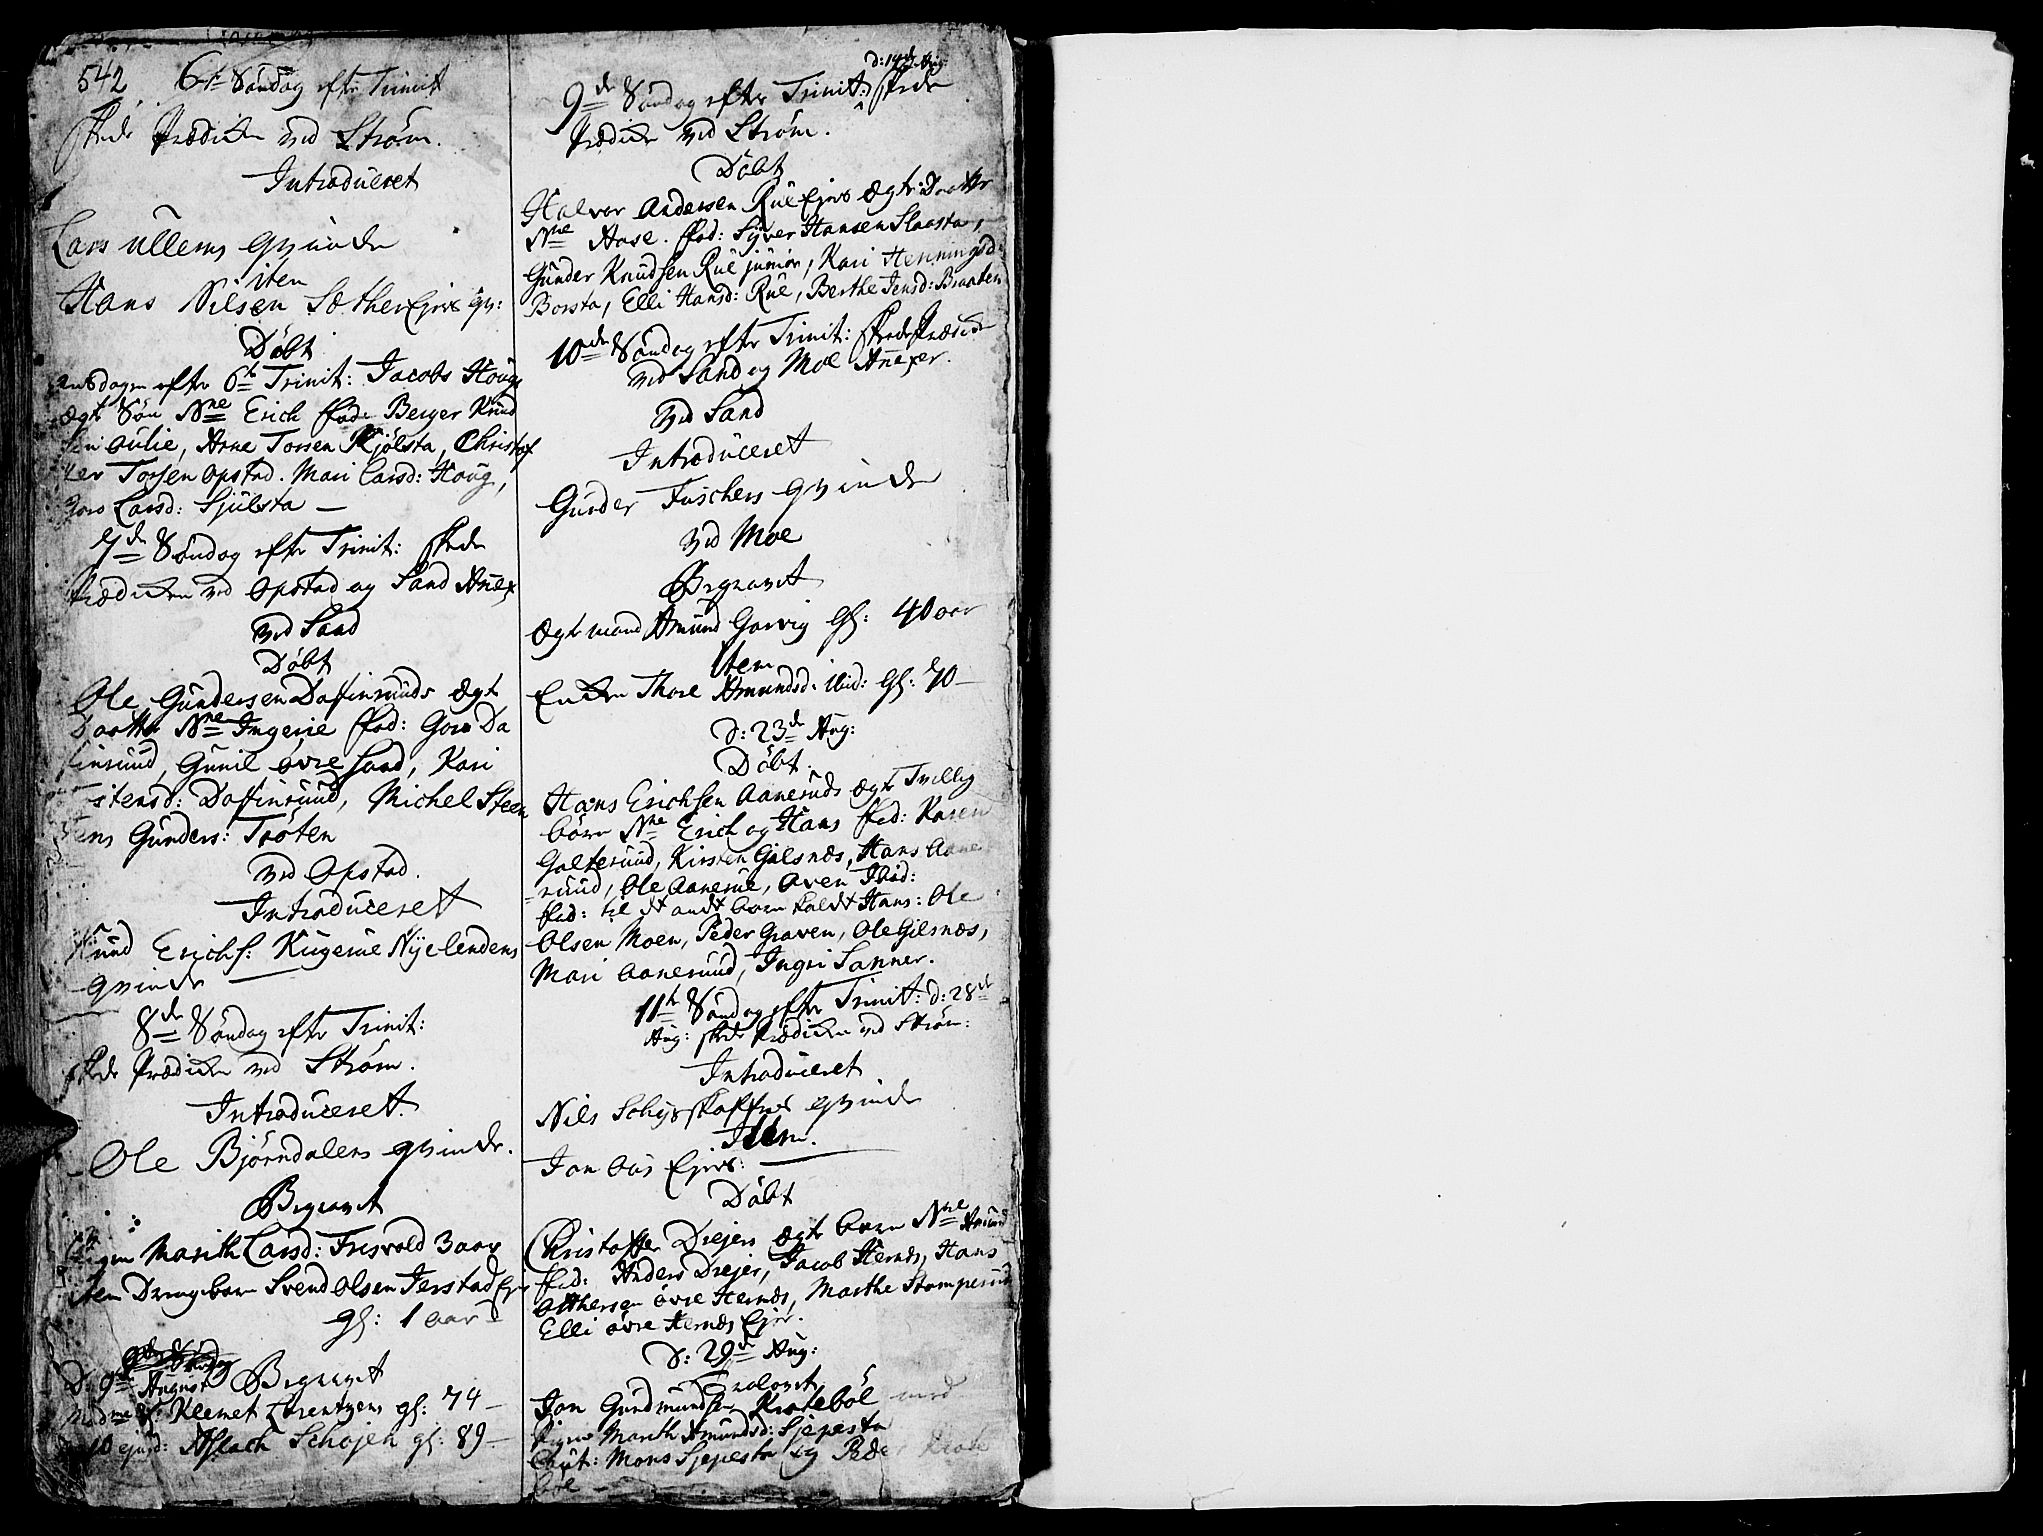 542 6te Søndag efter Trinit
skede Prædiken ved Strøm.
Introduceret
Lars Ullerns Qvinde
iten
Hans Nilsen Sæther Ejers Qv:
Døbt
Onsdagen efter 6te Trinit: Jacobs Houg
Ægte Søn Nne Erich ffad: Berger Knud
sen Aulie, Arne Torsen Kjølsta, Christof
fer Torsen Opstad. Mari Larsd: Houg,
Goro Larsd: Sjulsta —
7de Søndag efter Trinit: skede
Prædiken ved Opstad og Sand Annex
ved Sand
Døbt
Ole Gundersen Dafinruds Ægte
Daatter Nne Ingerie ffad: Goro Da
finruud, Gunil Øvre Sand, Kari
stensd: Dafinruud, Michel Steen
Jens Gunders: Trøten
ved Opstad.
Introduceret
Knud Erichs: Kugerue Nye lendens
Qvinde —
8de Søndag efter Trinit:
skede Prædiken ved Strøm.
Introduceret.
Ole Bjørndalens Qvinde.
Begravet
Pigen Marith Larsd: Frisvold 3 aar
iten Drengebarn Svend Olsen Jerstad Ejer
gl: 1 aar
D: 9de August Begravet
Klemet Lorentzens gl: 74 —
10 ejusd: Aslach Schojen gl: 89 —
d: 14de Aug:
9de Søndag efter Trinit: skede
Prædiken ved Strøm.
Døbt
Halvor Andersen Rue Ejers Ægte Daatter
Nne Aase. ffad: Syver Hansen Slaasta,
Gunder Knudsen Rue junior, Kari Henningsd:
Borsta, Elli Hansd: Rue, Berthe Jensd: Braaten
10de Søndag efter Trinit: skede Prædiken
ved Sand og Moe Annexer.
ved Sand
Introduceret
Gunder Fuschers Qvinde
ved Moe
Begravet
Ægte mand Amund Garvig gl: 40 aar
Item
Enken Thore Amundsd: ibid: gl: 70 —
d: 23de Aug:
Døbt.
Hans Erichsen Aaneruds Ægte Tvillig
børn Nne Erich og Hans ffad: Karen
Galterund, Kirsten Gilsnæs, Hans Aane
ruud, Ole Aanerue, Aven Ibid:
ffad: til det andet barn kaldet Hans: Ole
Olsen Moen, Peder Graven, Ole Gilsnæs,
Mari Aaneruud, Ingri Sanner.
11te Søndag efter Trinit: d: 28de
Aug: skede Prædiken ved Strøm:
Introduceret
Nils Schysskaffers Qvinde
Item.
Jon Aas Ejers: —
Døbt
Christoffer Drejers Ægte barn Nne Amund
ffad: Anders Drejer, Jacob Hernæs, Hans
Ottersen Øvre Hernæs, Marthe Stomperud
Elli Øvre Hernæs Ejer.
d: 29de Aug:
Trolovet
Jon Gudmunds: Kratebøl med
Pigen Marith Amundsd: Sjepesta
Caut: Mons Sjepesta og Peder Krate
bøl —